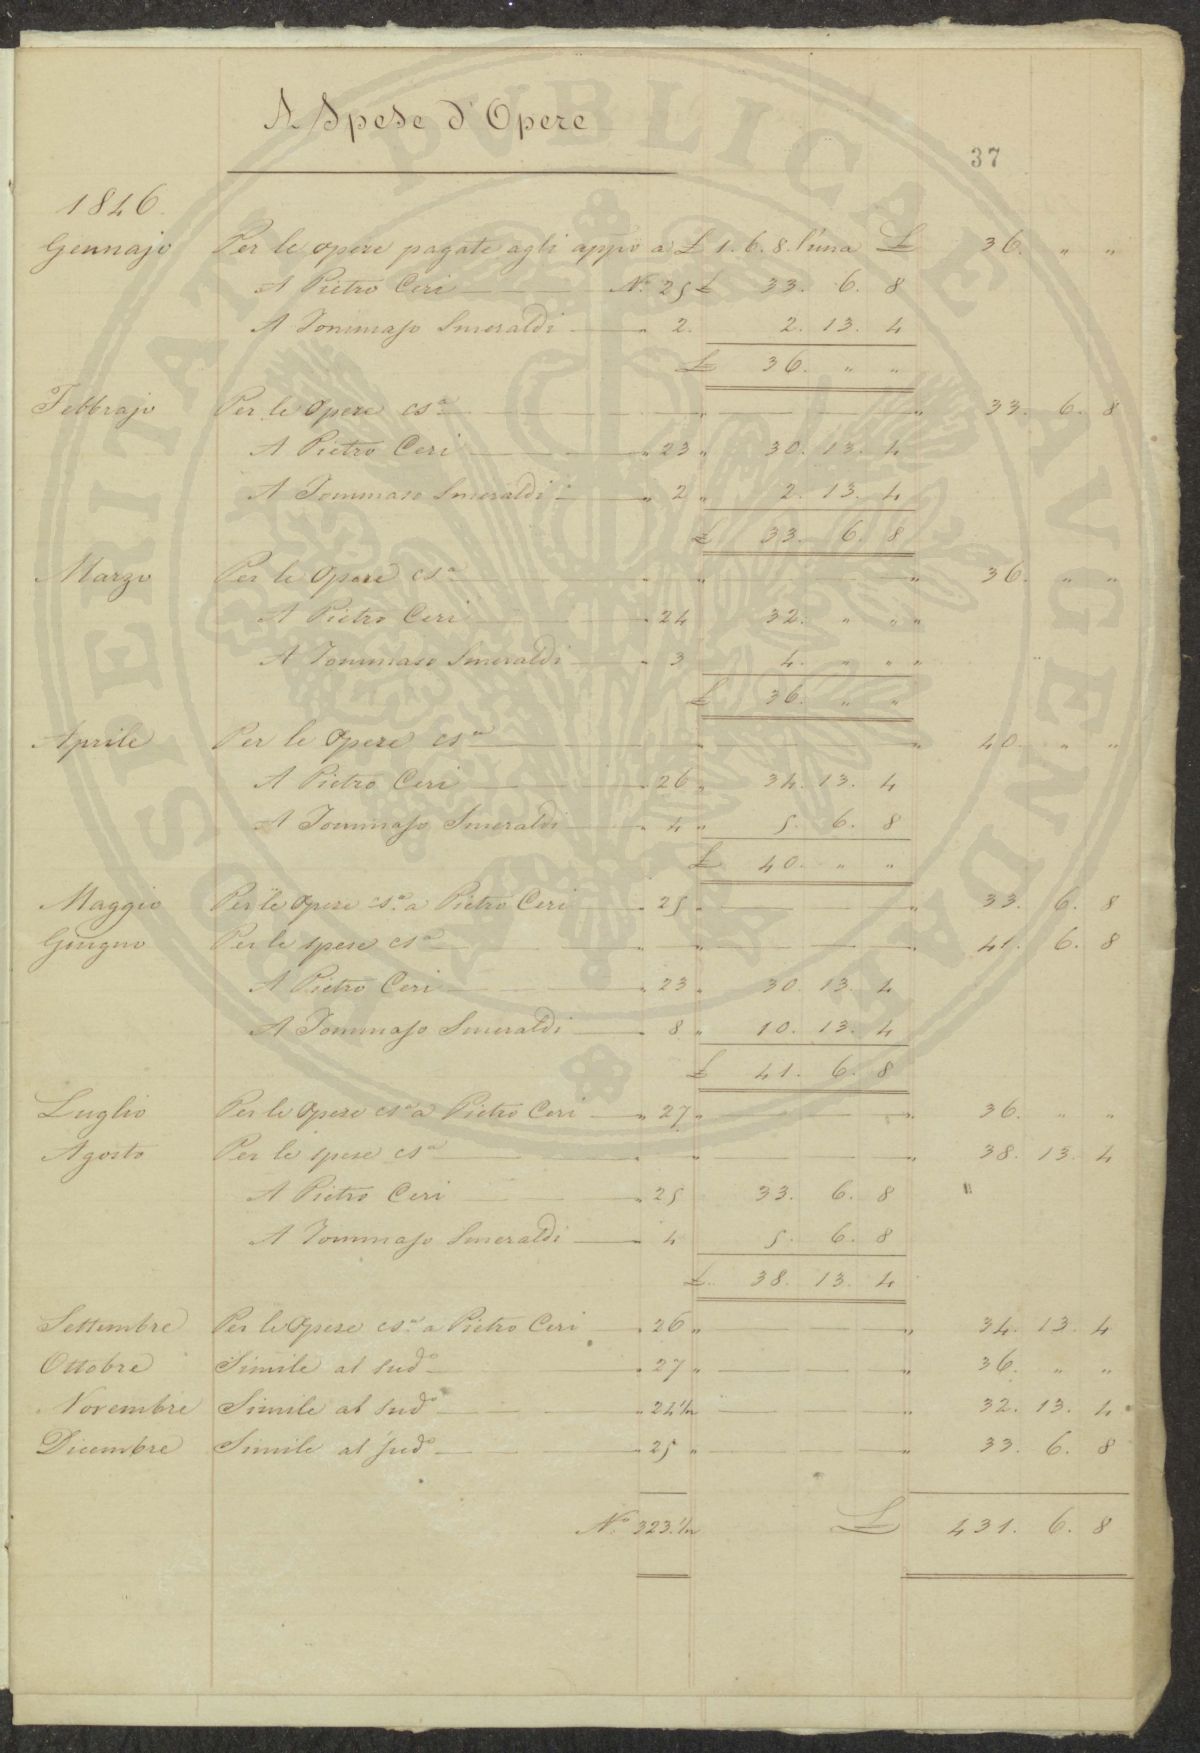 A Spese d'Opere
37
1846.
Gennajo Per le opere pagate agli appo a £ 1. 6. 8 l'una £ 36. " "
A Pietro Ceri N.° 25 £ 33. 6. 8
A Tommaso Smeraldi " 2. 2. 13. 4
£ 36. " "
Febbrajo Per le Opere csa " " 33. 6. 8
A Pietro Ceri " 23 " 30. 13. 4
A Tommaso Smeraldi " 2 " 2. 13. 4
£ 33. 6. 8
Marzo Per le Opere csa " " " 36. " "
A Pietro Ceri " 24 32. " " "
A Tommaso Smeraldi " 3 4. " " "
£ 36. " "
Aprile Per le Opere csa " " 40. " "
A Pietro Ceri " 26 " 34. 13. 4
A Tommaso Smeraldi " 4 " 5. 6. 8
£ 40. " "
Maggio Per le Opere csa a Pietro Ceri " 25 " " 33. 6. 8
Giugno Per le spese csa " " " 41. 6. 8
A Pietro Ceri " 23 " 30. 13. 4
A Tommaso Smeraldi " 8 " 10. 13. 4
£ 41. 6. 8
Luglio Per le Opere csa a Pietro Ceri " 27 " " 36. " "
Agosto Per le spese csa " " " 38. 13. 4
A Pietro Ceri " 25 33. 6. 8
A Tommaso Smeraldi " 4 5. 6. 8
£ 38. 13. 4
Settembre Per le Opere csa a Pietro Ceri " 26 " " 34. 13. 4
Ottobre Simile al sudo " 27 " " 36. " "
Novembre Simile al sudo " 24 1/2 " 32. 13. 4
Dicembre Simile al sudo " 25 " " 33. 6. 8
N.° 323. 1/2 £ 431. 6. 8
OSPERITATI PVBLICAE AVGENDAE